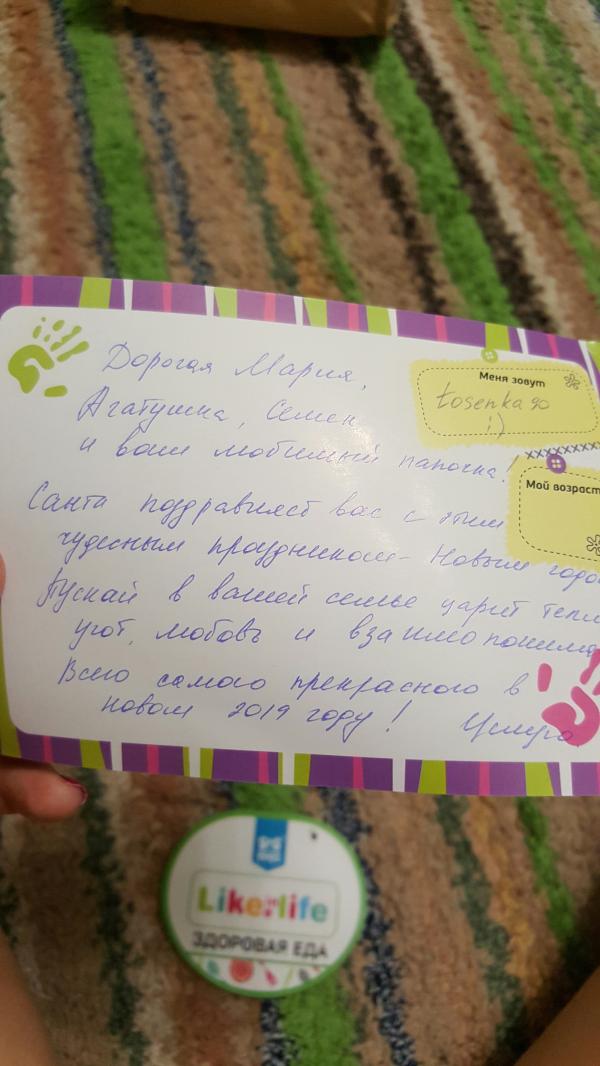 Дорогая Мария,
Агатушка, Семен
и ваш любимый папочка!
Меня зовут
Łosenka 90
:)
Мой возраст
Санта поздравляет вас с этим
чудесным праздником - Новым годо
Пускай в вашей семье царит тепл
уют, любовь и взаимопонима
Всего самого прекрасного в
новом 2019 году!
Likenlife
ЗДОРОВАЯ ЕДА